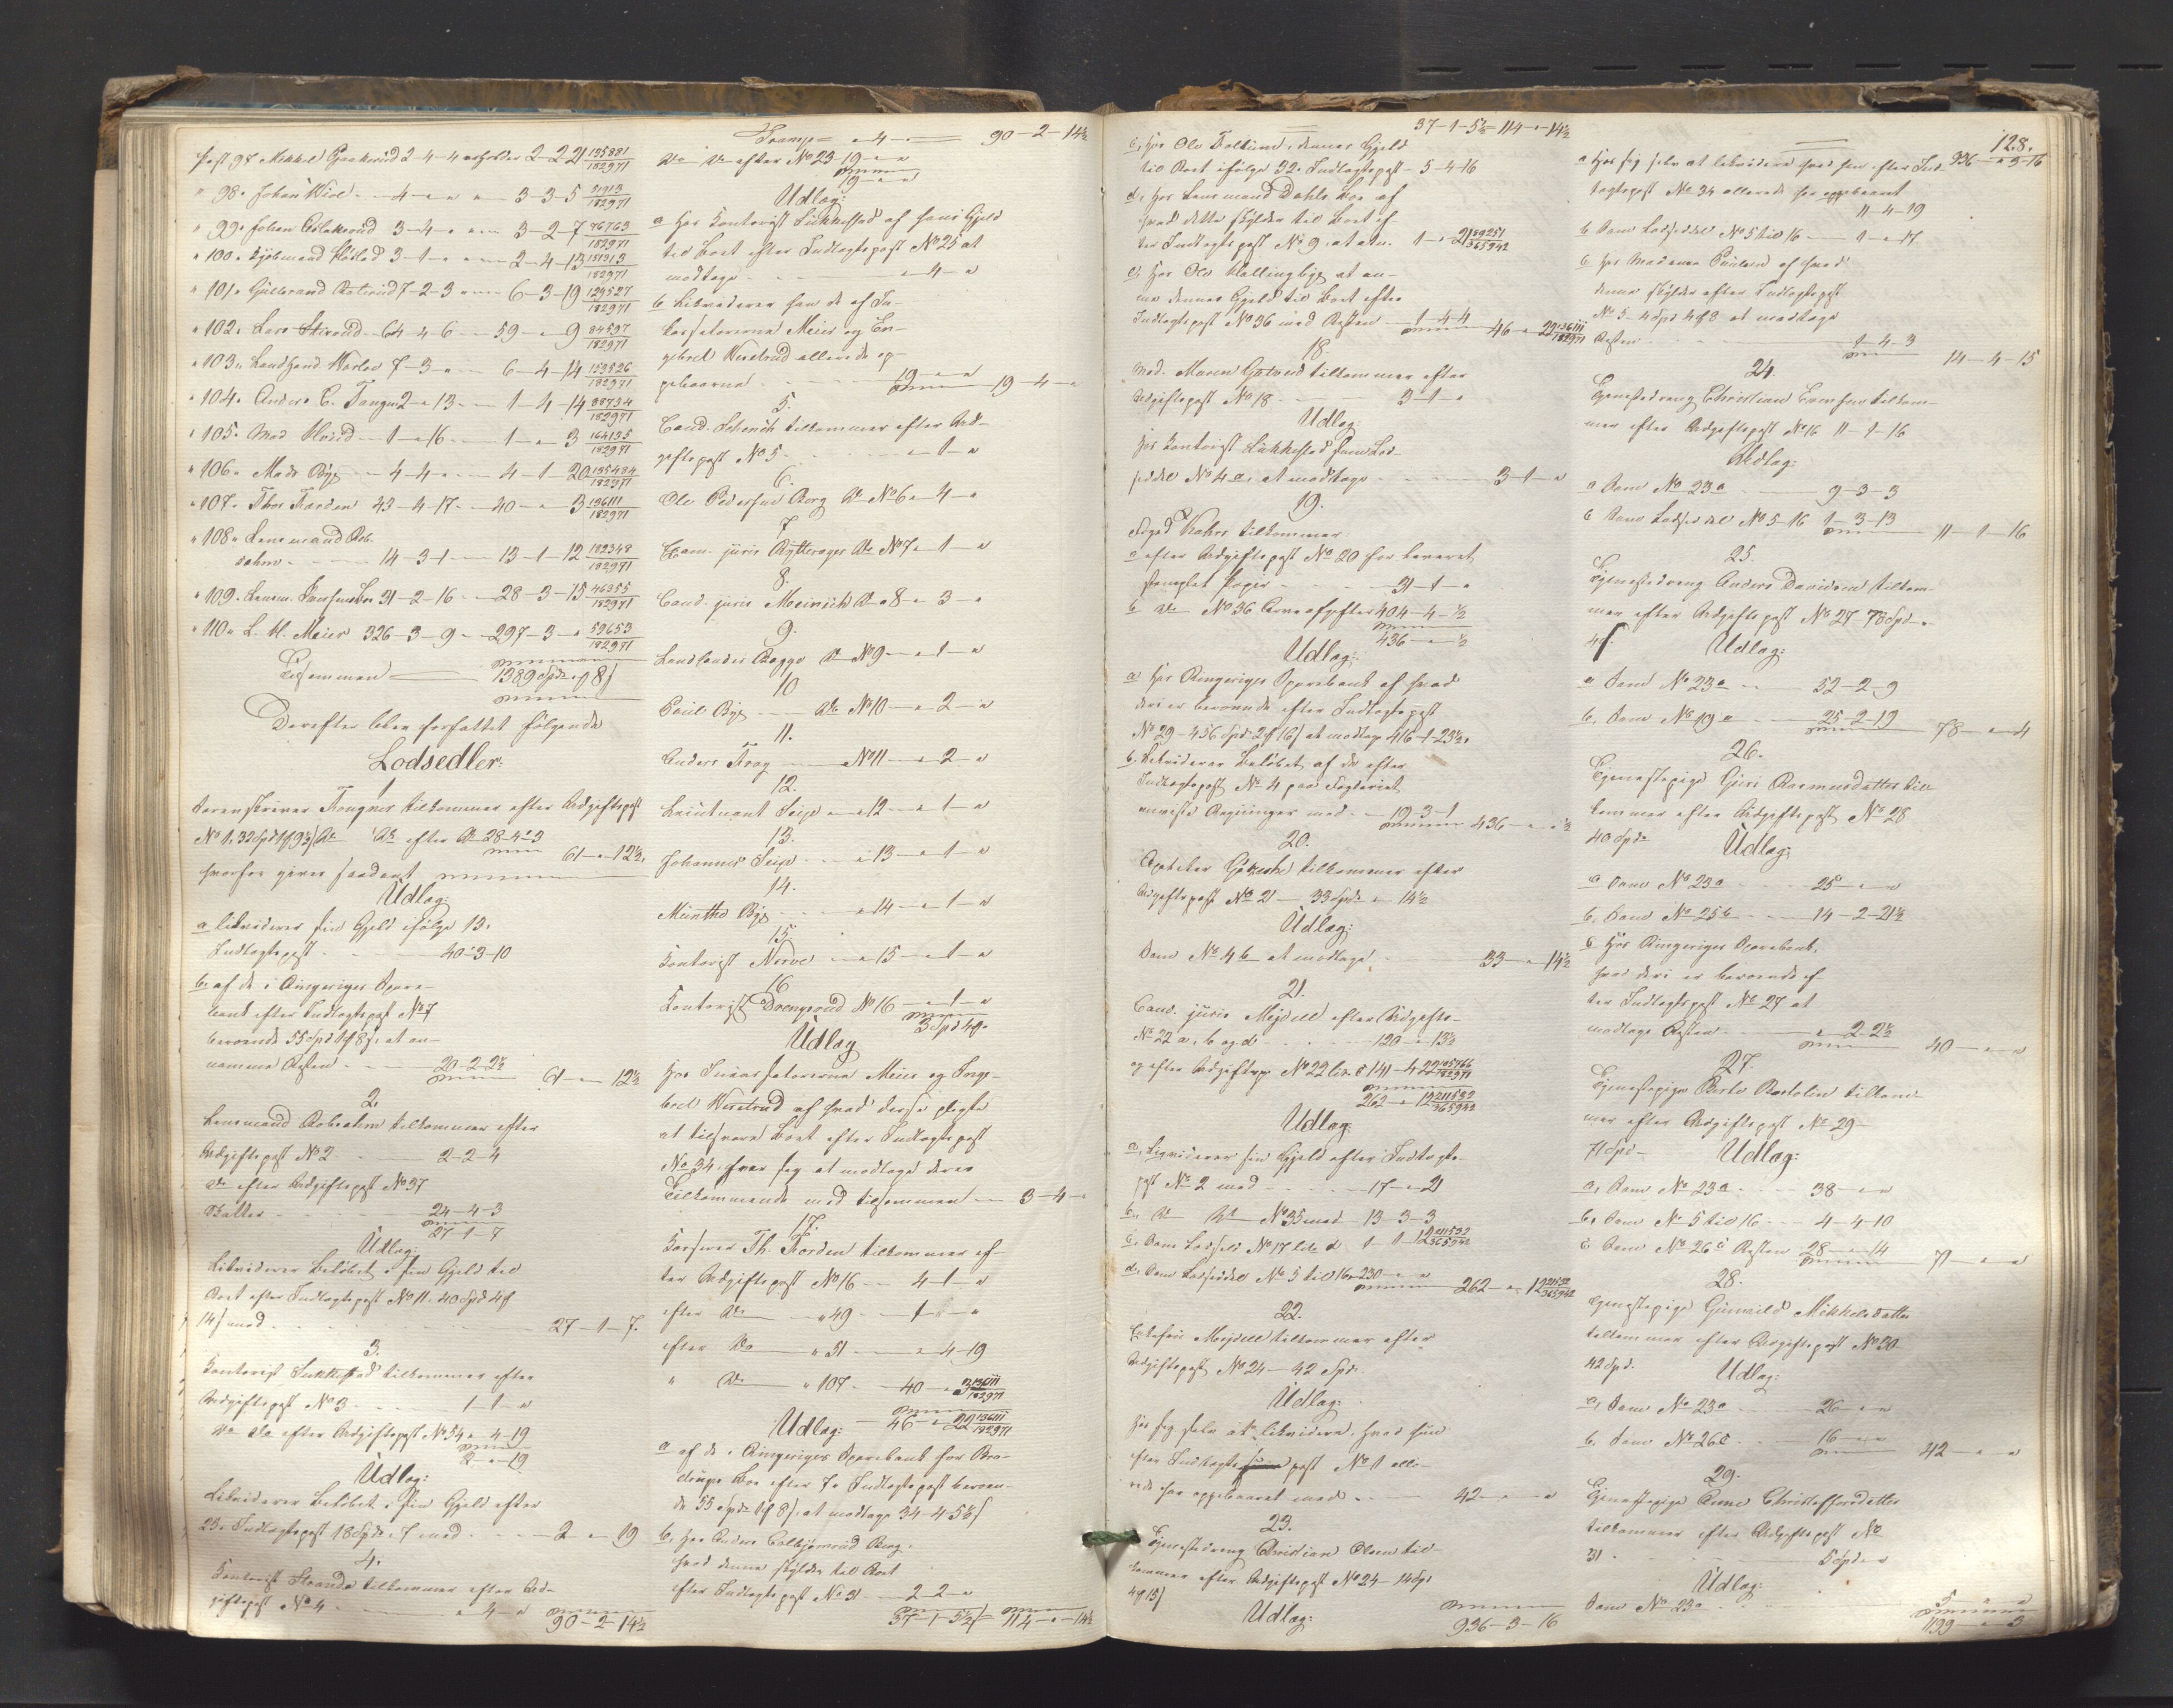 Post 97. Mikkel Gaakerud 2-4-4 erholder 2-2-21 135881/182971
" 98. Johan Wiel - 4 - " " " 3-3-5
" 99. Johan Eslakerud 3-4-" " 3-2-7 76763/182971
" 100. Kjøbmand 3-1-" " 2-4-13 151313/182971
" 101. Gulbrand 7-2-3 " 6-3-19 129527/182971
" 102. Lars 64 4 6 - 59 - " 9 84597/182971
" 103. Landhand. 7-3-" 6-4-14 153526/182971
" 104. Anders C. Tangen 2-"-13 - 1-4-14 88734/182971
" 105. Mad 1-"-16 - 1-"-3 164135/182971
" 106. Mads Bye 4-4-" 4-1-20 135484/182971
" 107. Thor Forden 43-4-17 - 40-"-3 136111/182971
" 108. Lensmand Rob-
sahm 14-3-1 - 13-1-12 182348/182971
" 109. Lensm. 31-2-16 - 28-3-15 46355/182971
" 110. L. H. Meier 326-3-9 - 297-3-" 59653/182971
Tilsammen 1389 Spd " 8 s
Derefter blev forfattet følgende
Lodsedler:
1
Sorenskriver tilkommer efter Udgiftspost
efter 28-4-3
61-"-12½
herfor gives saadant
Udlag:
a likviderer sin Gjeld ifølge 13.
Indtægtspost 40-3-10
b. af de i Ringeriges Spare-
bank efter Indtægtspost No 7
beroende 55 Spd 1 8 s, at an-
namme Resten 20-2-2½
61-"-12½
2.
Lensmand Robsahm tilkommer efter
Udgiftspost No 2 2-2-4
do efter Udgiftspost No 37
Skatter 24-4-3
27-1-7
Udlag:
Likviderer Beløbet i sin Gjeld til
Boet efter Indtægtspost No 11. 40 Spd 4
14 s med 27-1-7.
3.
Kontorist Lukkestad tilkommer efter
Udgiftspost No 3 1-1-"
do do efter Udgiftspost No 54 " 4-19
2-"-19
Udlag:
Likviderer Beløbet i sin Gjeld efter
23. Indtægtspost 18 Spd med 2-"-19
4.
Kontorist Strande tilkommer efter Ud-
giftspost No 4 "-4-"
90-2-14½
Transp "-4-" 90-2-14½
do do efter No 23 19-"-"
19-"-"
Udlag:
a Hos Kontorist Lukkestad af hans Gjeld
til Boet efter Indtægtspost No 23 at
modtage "-4-"
b Likviderer han de af In-
kassatorerne Meier og En-
gebret allerede op-
pebaarne 19-"-"
19-4-"
5.
Cand. Schenck tilkommer efter Ud-
giftspost No 5 "-1-"
6.
Ole Pedersen Berg do No 6 " 4-"
7
Exam. juris Rytterager do No 7 " 1-"
8.
Cand. juris Meinich do " 8 " 3-"
9.
Bagge do No 9 "-1-"
10
Paul Bye do No 10 "-2-"
11.
Anders No 11 "-2-"
12.
Leutnant Seip " 12 "-1-"
13.
Johannes Seip " 13 "-1-"
14.
Münthe Bye " 14 "-1-"
15
Kontorist " 15 "-1-"
16
Kontorist Drengsrud No 16 "-1-"
3 Spd 4
Udlag
Hos Inkassatorerne Meier og Enge-
bret af hvad disse pligte
at tilsvare Boet efter Indtægtspost
No 34. hver sig at modtage deres
Tilkommende med tilsammen 3-4-"
17.
Th. Forden tilkommer ef-
ter Udgiftspost No 16 4-1-"
efter do " 49 - 1-"
efter do " 51 " 4-19
" do " 107 - 40-"-3 136111/182971
46-"-22 136111/182971
Udlag:
a af de i Ringeriges Sparebank for
Boe efter 7. Indtægtspost beroen-
de 55 Spd 1 8 s, at modtage 34-4-5½
b, hos Anders Berg.
hvad denne skylder til Boet
efter Indtægtspost No 31 2-2-"
37-1-5½ 114-"-14½
37-1-5½ 114-"-14½
c, hos Ole dennes Gjeld
til Boet ifølge 32. Indtægtspost - 5-4-16
d, hos Lensmand Dahls Boe af
hvad dette skylder til Boet ef-
ter Indtægtspost No 9. at 1-"-21 59251/365942
e, hos Ole Hallingbye at an-
namme dennes Gjeld til Boet efter
Indtægtspost No 36 med Resten 1-4-4
46-"-22 136111/182971
18.
Mad. Maren tilkommer efter
Udgiftspost No 18 3-1-"
Udlag
Hos Kontorist Lukkestad Lod-
seddel No 4 a, at modtage 3-1-"
19.
tilkommer
a efter Udgiftspost No 20 for leveret
stemplet Papir 31-1-"
b do No 36 Arveafgifter 404-4-½
436-"-½
Udlag:
a hos Ringeriges Sparebank af hvad
deri er beroende efter Indtægtspost
No 29 - 456 Spd 2 16 s at modtage 416-1-23½
b. Likviderer Beløbet af de efter
Indtægtspost No 4 paa
anviste med 19-3-1
436-"-½
20.
Apotheker tilkommer efter
Udgiftspost No 21 - 33 Spd " 14½
Udlag:
Som No 4 b at modtage 33-"-14½
21.
Cand. juris Mejdell efter Udgifts-
No 22 a, b og d 120-"-13½
og efter Udgiftsp. No 22 litr. c 141-4-22 105766/182971
262-"-12 211532/365942
Udlag:
a, Likviderer sin Gjeld efter Indtægts-
post No 2 med 17-"-21
b, do do No 35 med 13-3-3
c, Som Lodsed. No 17 litr d 1-1-12 211532/365942
d, Som Lodseddel No 5 til 16 - 230-"-"
262-"-12 211532/365942
22.
Mejdell tilkommer efter
Udgiftspost No 24 - 42 Spd.
Udlag:
Hos sig selv at likvidere, hvad hun
efter Indtægts post No 1 alle-
rede har oppebaaret med 42-"-"
23.
Tjenestedreng Christian Olsen til-
kommer efter Udgiftspost No 24 - 14 Spd
4 15 s
Udlag:
936-3-16
128.
936-3-16
a Hos sig selv at likvidere hvad han efter Ind-
tægtspost No 34 allerede har oppebaaret
11-4-19
b Som Lodseddel No 5 til 16 - 1-"-17
c Hos Madame Paulsen af hvad
denne skylder efter Indtægtspost
No 5 - 4 Spd 4 8 at modtage
Resten 1-4-3
14-4-15
24.
Tjenestedreng Christian tilkom-
mer efter Udgiftspost No 16 11-1-16
Udlag:
a Som No 23 a 9-3-3
b Som Lodseddel No 5-16 1-3-13
11-1-16
25.
Tjenestedreng Anders Davidsen tilkom-
mer efter Udgiftspost No 27 - 78 Spd "
4 s.
Udlag:
a Som No 23 a 52-2-9
b, Som No 19 a 25-2-19
78-"-4
26.
Tjenestepige Guri Rasmusdatter til-
kommer efter Udgiftspost No 28
40 Spd
Udlag:
a Som No 23 a 25-"-"
b, Som No 25 b 14-2-21½
c Hos Ringeriges Sparebank,
hvad deri er beroende ef-
ter Indtægtspost No 27 at
modtage Resten "-2-2½
40-"-"
27.
Tjenestepige Berte tilkom-
mer efter Udgiftspost No 29
71 Spd -
Udlag:
a, Som No 23 a 38-"-"
b, Som No 5 til 16 4-4-10
c Som No 26 c Resten 28-"-14
71-"-"
28.
Tjenestepige Gunild Mikkelsdatter
tilkommer efter Udgiftspost No 30
42 Spd.
Udlag:
a, Som No 23 a 26-"-"
b, Som No 26 c 16-"-"
42-"-"
29.
Tjenestepige Anne Christoffersdatter
tilkommer efter Udgiftspost No
31 5 Spd "
Udlag:
Som No 23 a 5 " "
1199-"-3